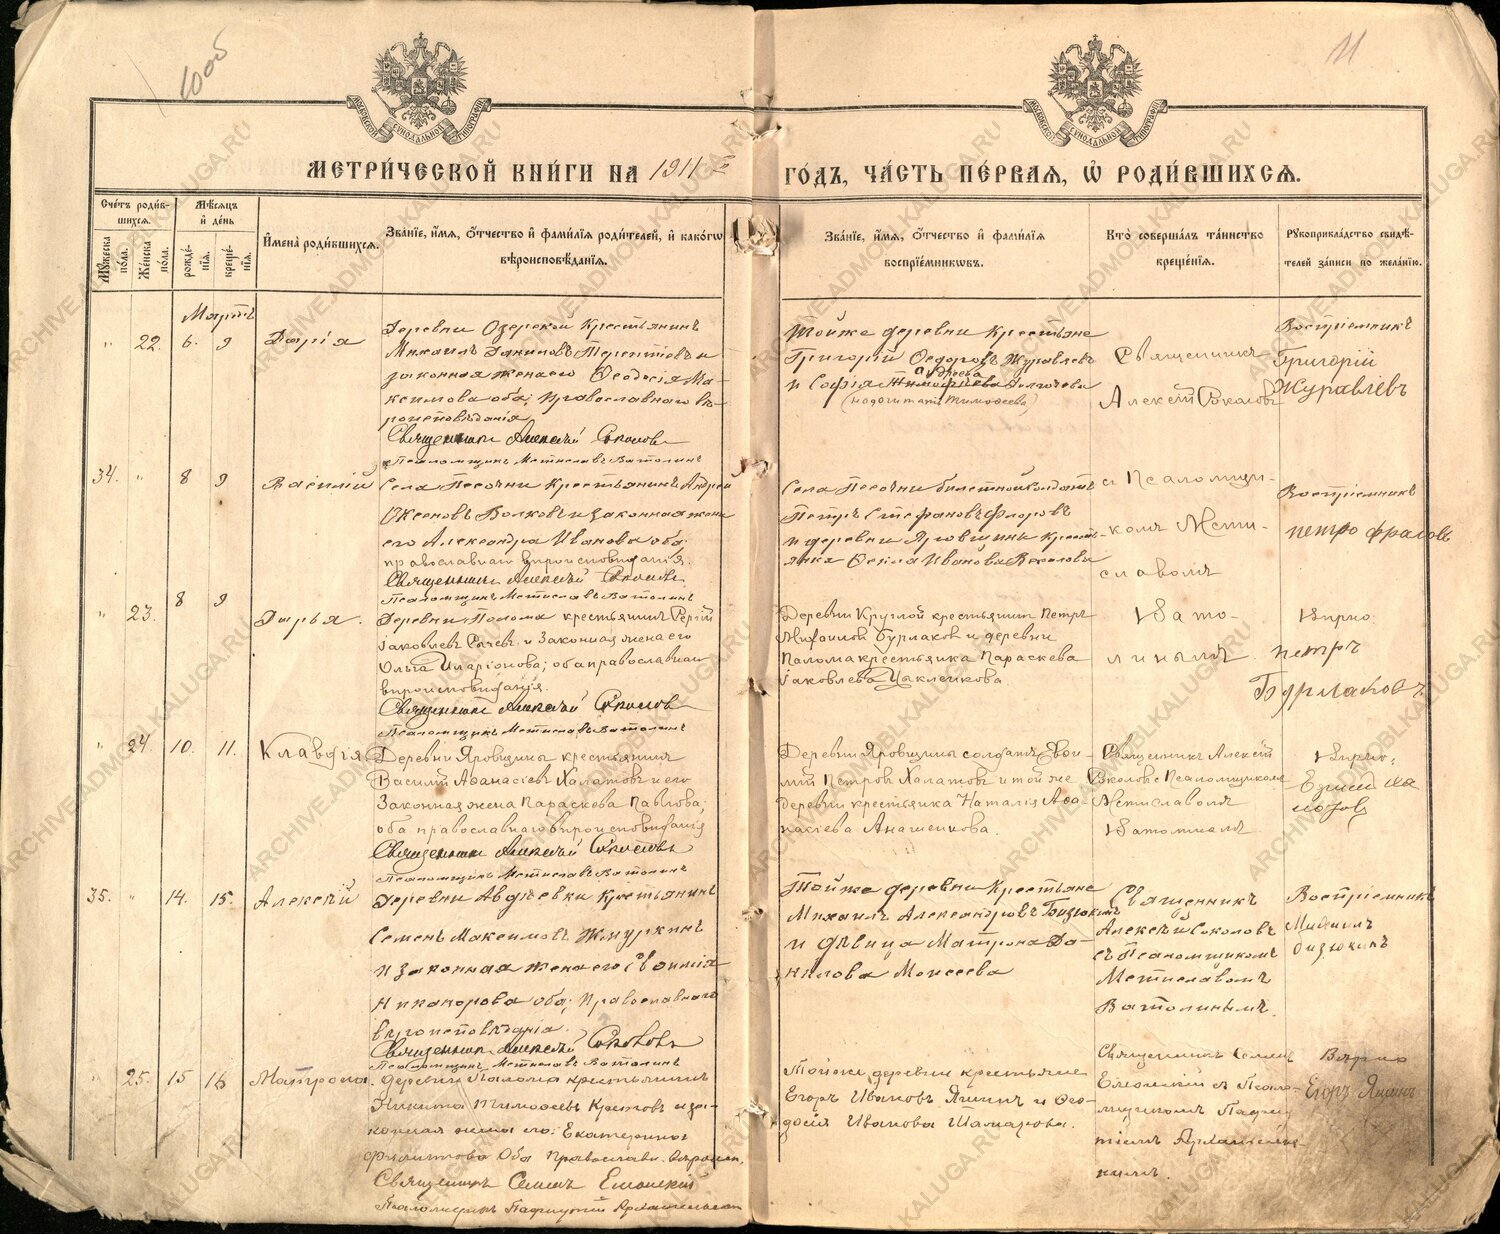 10об
11
МОСКОВСКОЙ СѴНОДАЛЬНОЙ ТИПОГРАФІИ
МОСКОВСКОЙ СѴНОДАЛЬНОЙ ТИПОГРАФІИ
МЕТРИ́ЧЕСКОЙ КНИ́ГИ НА 1911й ГО́ДЪ, ЧА́СТЬ ПЕ́РВАЯ, Ѡ РОДИ́ВШИХСЯ.
Счетъ роди́в-
шихся.
Мужеска по́ла.
Же́нска по́ла.
Мѣсяцъ
и день
рожде-
нія.
креще-
нія.
Имена̀ роди́вшихся.
Зва́ніе, имя, отчество и фами́лія роди́телей, и како́гѡ
вѣроисповѣданія.
Зва́ніе, имя, отчество и фами́лія
воспріемникѡвъ.
Кто̀ соверша́лъ та́инство
креще́нія.
Рукоприкла́дство свидѣ-
телей за́писи по жела́нію.
Мартъ
" 22. 6. 9 Дарія
Деревни Озерской Крестьянинъ
Михаилъ Даниловъ Терентьевъ и
законная жена его Ѳеодосія Ма-
ксимова оба; Православнаго вѣ-
роисповѣданія
Священникъ Алексѣй Соколовъ
Псаломщикъ Мстиславъ Ватолинъ
Тойже деревни Крестьяне
Григорій Ѳедоровъ Журавлевъ
и Софія Тимофѣева
(надо читать Тимоѳеева)
Священникъ
Алексѣй Соколовъ
Воспріемникъ
Григорій
Журавлёвъ
34. " 8 9 Василій
Села Песочни Крестьянинъ Андрей
Оксеновъ Волковъ и законная жена
его Александра Иванова оба
православнаго вѣроисповѣданія.
Священникъ Алексѣй Соколовъ
Псаломщикъ Мстиславъ Ватолинъ
Села Песочни билетной солдатъ
Петръ Стефановъ Флоровъ
и деревни Яровщины кресть-
янка Ѳекла Иванова
съ Псаломщи-
комъ Мсти-
славомъ
Воспріемникъ
петръ фроловъ
" 23. 8 9 Дарья.
Деревни Полома крестьянинъ Сергій
Іаковлевъ и Законная жена его
Ольга Иларіонова; оба православнаго
вѣроисповѣданія.
Священникъ Алексѣй Соколовъ
Псаломщикъ Мстиславъ Ватолинъ
Деревни Круглой крестьянинъ Петръ
Михаиловъ Бурлаковъ и деревни
Палома крестьянка Параскева
Іаковлева Цыкленкова.
Вато-
линымъ
Вѣрно
петръ
Бурлаковъ
" 24. 10. 11. Клавдія
Деревни Яровщины крестьянинъ
Василій Аѳанасьевъ Халатовъ и его
Законная жена Параскева Павлова;
оба православнаго вѣроисповѣданія
Священникъ Алексѣй Соколовъ
Псаломщикъ Мстиславъ Ватолинъ
Деревни Яровщины солдатъ
Петровъ Халатовъ и той же
деревни крестьянка Наталія Аѳа-
насіева Анашенкова.
Священникъ Алексѣй
Соколовъ с Псаломщикомъ
Мстиславомъ
Ватолинымъ
Вѣрно:
35. " 14. 15. Алексѣй
Деревни Авдѣевки Крестьянинъ
Семенъ Максимовъ Жмуркинъ
и законная жена его Евфимія
Никанорова оба; Православнаго
вѣроисповѣданія.
Священникъ Алексѣй Соколовъ
Псаломщикъ Мстиславъ Ватолинъ
Тойже деревни Крестьяне
Михаилъ Александровъ Бизюкинъ
и дѣвица Матрона Да-
нилова Моисеева
Священникъ
Алексѣй Соколовъ
съ Псаломщикомъ
Мстиславомъ
Ватолинымъ.
Воспріемникъ
Михаилъ
бизюкинъ
" 25. 15 16 Матрона.
деревни Палома крестьянинъ
Никита Тимоѳеевъ и за-
конная жена его: Екатерина
Филиппова Оба Православн. Вѣроисп.
Священникъ Семенъ Елионскій
Псаломщикъ Пафнутій Архангельскій
Тойже деревни крестьяне
Егоръ Ивановъ Яшинъ и Ѳео-
досія Иванова
Священникъ Семенъ
Елионскій съ Псало-
мщикомъ Пафну-
тіемъ Архангель-
скимъ.
Вѣрно
Егоръ Яшинъ
ARCHIVE.ADMOBLKALUGA.RU